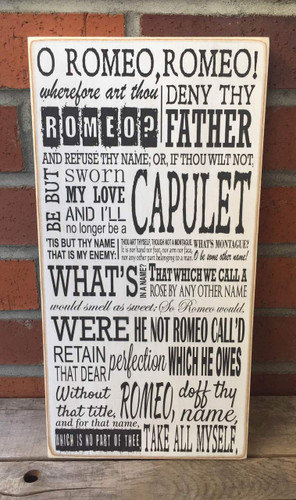 O ROMEO, ROMEO!
wherefore art thou
ROMEO?
DENY THY
FATHER
AND REFUSE THY NAME; OR, IF THOU WILT NOT,
BE BUT
SWORN
MY LOVE
AND I'LL
no longer be a
CAPULET
'TIS BUT THY NAME
THAT IS MY ENEMY:
THOU ART THYSELF, THOUGH NOT A MONTAGUE.
It is nor hand nor foot, nor arm nor face,
nor any other part belonging to a man.
WHAT'S MONTAGUE?
O be some other name!
WHAT'S
IN A NAME?
THAT WHICH WE CALL A
ROSE BY ANY OTHER NAME
would smell as sweet; So Romeo would,
WERE HE NOT ROMEO CALL'D
RETAIN
THAT DEAR
perfection
WHICH HE OWES
Without
that title,
and for that name,
ROMEO,
doff thy
name,
WHICH IS NO PART OF THEE
TAKE ALL MYSELF.